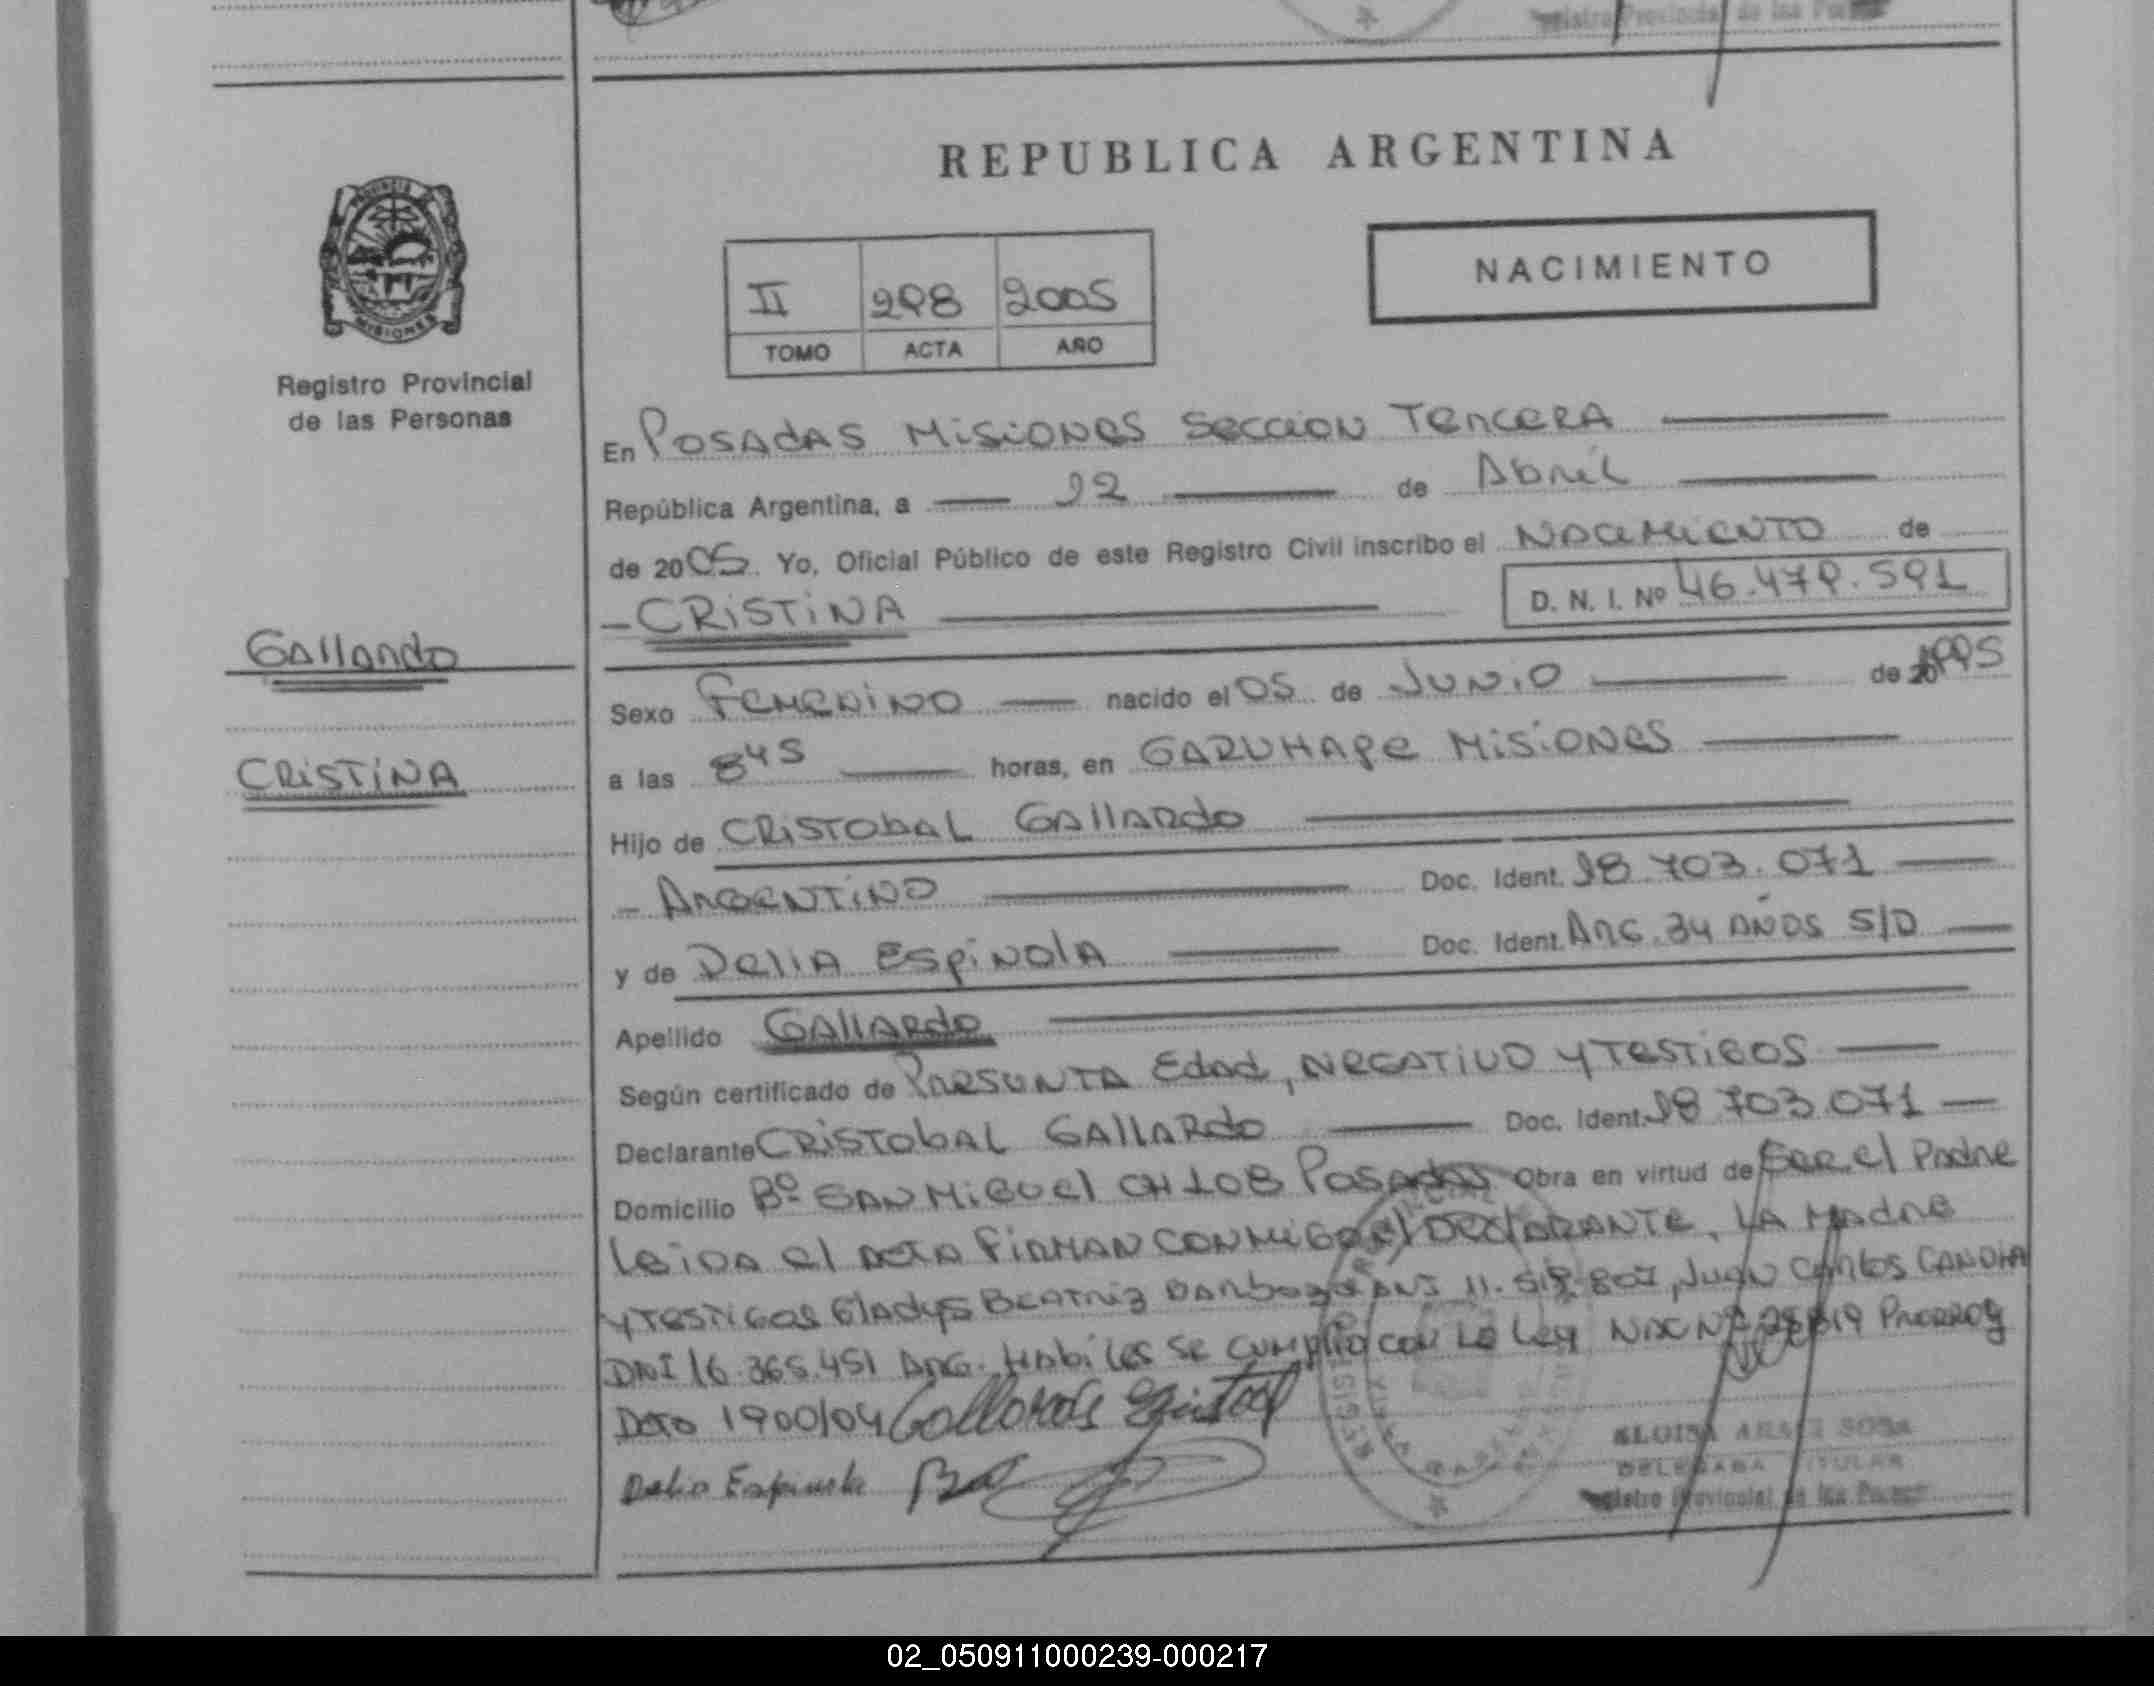 Registro Provincial de las Personas
REPUBLICA ARGENTINA
NACIMIENTO
II 298 2005
TOMO ACTA AÑO
PROVINCIA
MISIONES
Registro Provincial
de las Personas
En POSADAS MISIONES SECCION TERCERA
República Argentina, a 12 de Abril
de 2005. Yo, Oficial Público de este Registro Civil inscribo el NACIMIENTO de
- CRISTINA D. N. I. Nº 46.479.591
Gallardo
Sexo FEMENINO nacido el 05 de JUNIO de 1995
CRISTINA
a las 8 45 horas, en GARUHAPE MISIONES
Hijo de CRISTOBAL GALLARDO
- ARGENTINO Doc. Ident. 18.703.071
y de DELIA ESPINOLA Doc. Ident. ARG. 34 AÑOS S/D
Apellido GALLARDO
Según certificado de PRESUNTA Edad, NEGATIVO Y TESTIGOS
Declarante CRISTOBAL GALLARDO Doc. Ident. 18 703.071
Domicilio Bº SAN MIGUEL CH 108 POSADAS Obra en virtud de SER el Padre
Leida el ACTA FIRMAN CONMIGO el DECLARANTE, LA MADRE
Y TESTIGOS Gladys BEATRIZ Barboza DNI 11. Juan Carlos CANDIA
DNI 16.365.451 ARG. Habiles Se cumplio con La Ley NAC Nº Prorrog
Dcto 1900/04 Gallardo Cristobal
Delia Espinola
ELOISA ARACI SOSA
DELEGADA TITULAR
Registro Provincial de las Personas
02_050911000239-000217